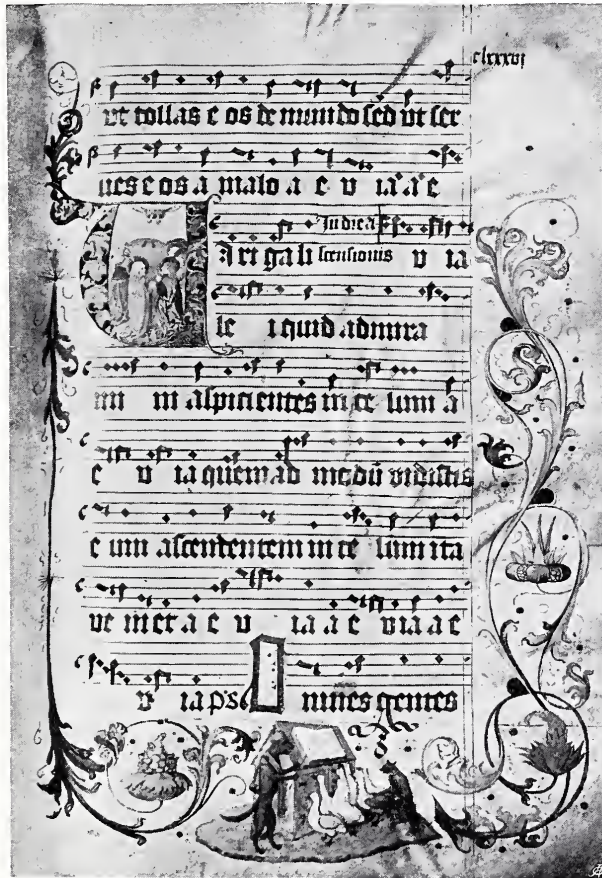 clxxxvj
ut tollas e os de mundo sed ut ser
ues e os a malo a e v ia a e
Judica
Uiri gali scensionis v ia
le i quid admira
mi m aspicientes in ce lum a
e v ia quem ad modū vidistis
e um ascendentem in ce lum ita
ve niet a e v ia a e via a e
v ia ps Omnes gentes